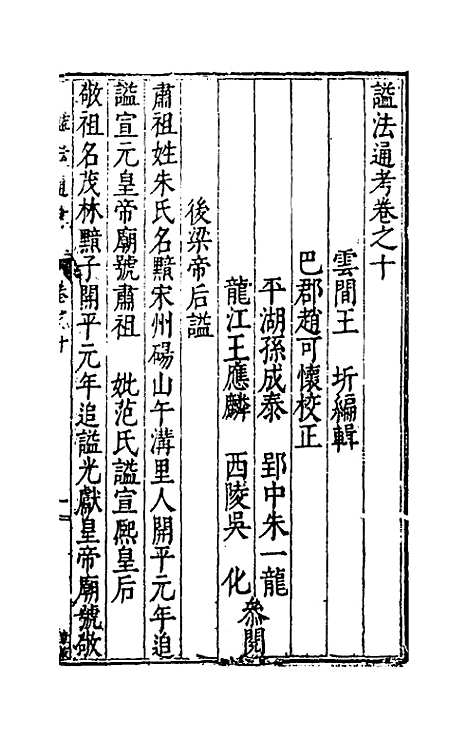 諡法通考卷之十
雲間王　圻編輯
巴郡趙可懷校正
平湖孫成泰　郢中朱一龍
龍江王應麟　西陵吳　化
參閱
後梁帝后諡
肅祖姓朱氏名黯宋州碭山午溝里人開平元年追
諡宣元皇帝廟號肅祖　妣范氏諡宣熙皇后
敬祖名茂林黯子開平元年追諡光獻皇帝廟號敬